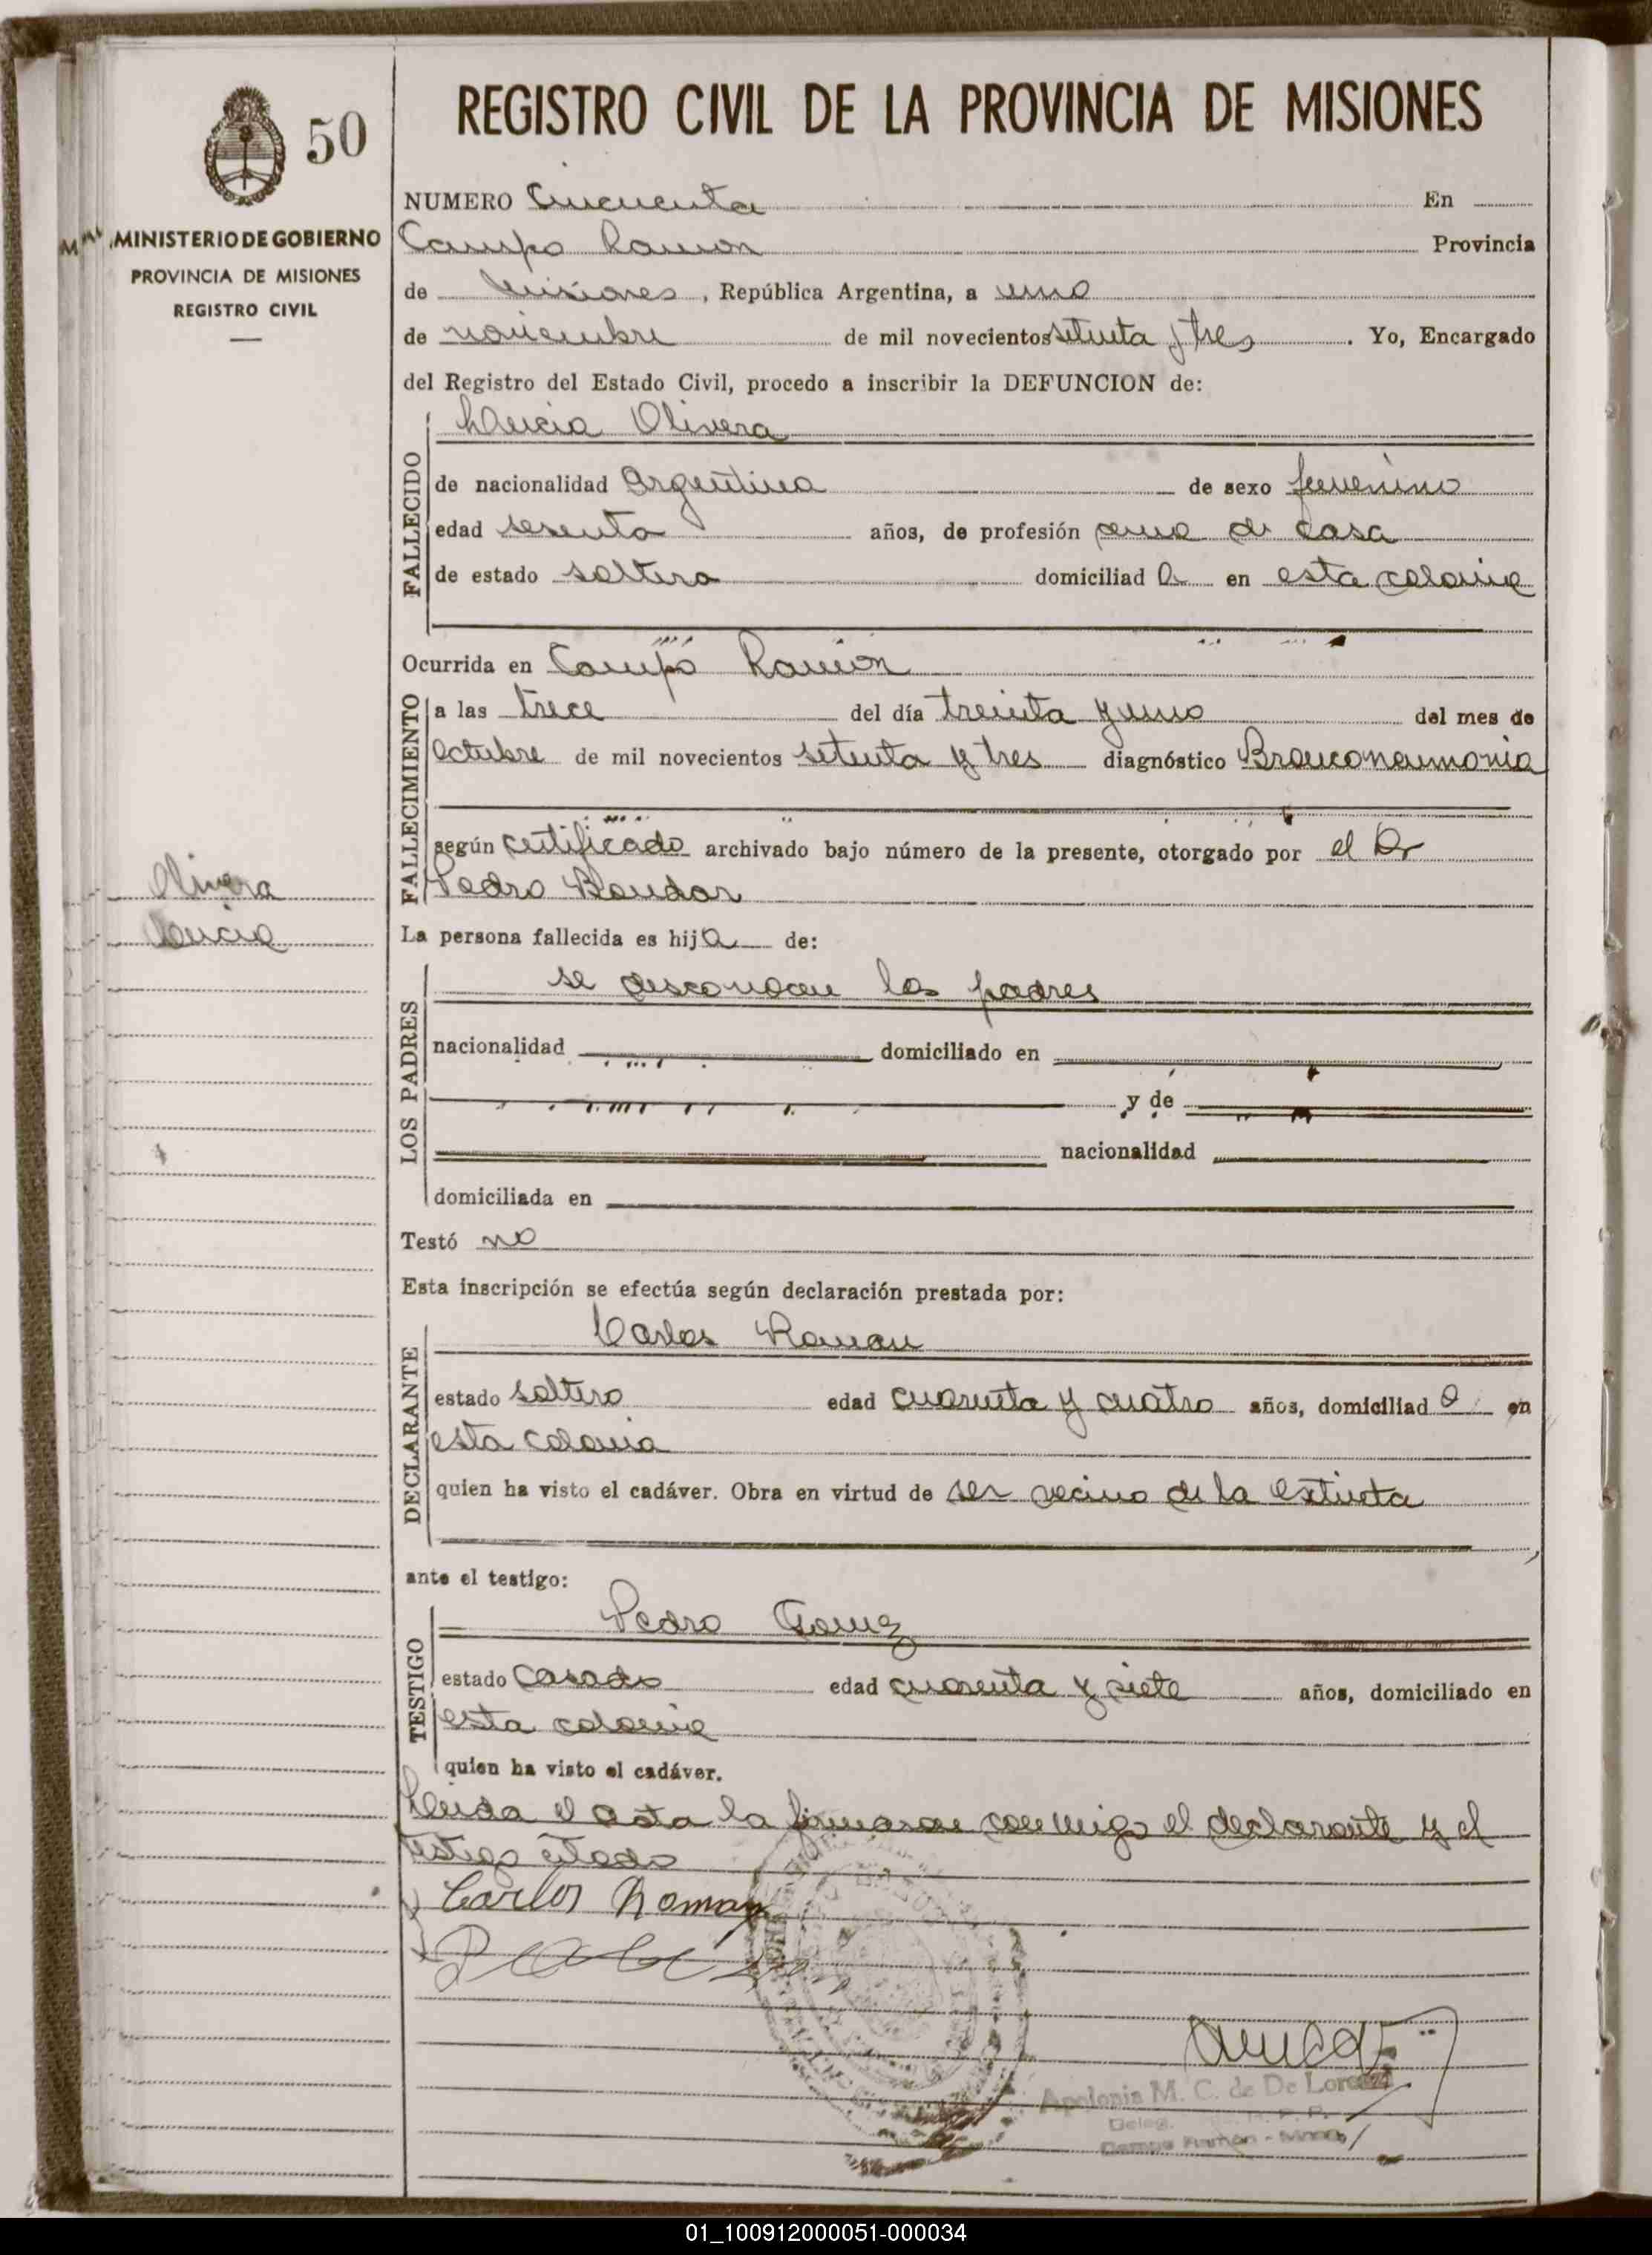 50
REGISTRO CIVIL DE LA PROVINCIA DE MISIONES
MINISTERIO DE GOBIERNO
PROVINCIA DE MISIONES
REGISTRO CIVIL
NUMERO Cincuenta En
Campo Ramon Provincia
de Misiones, República Argentina, a uno
de noviembre de mil novecientos setenta y tres. Yo, Encargado
del Registro del Estado Civil, procedo a inscribir la DEFUNCION de:
FALLECIDO
Lucia Olivera
de nacionalidad Argentina de sexo femenino
edad sesenta años, de profesión ama de casa
de estado soltera domiciliad a en esta colonia
Ocurrida en Campo Ramón
FALLECIMIENTO
a las trece del día treinta y uno del mes de
octubre de mil novecientos setenta y tres diagnóstico Bronconeumonia
según certificado archivado bajo número de la presente, otorgado por el Dr
Pedro
Olivera
Lucia
La persona fallecida es hija de:
LOS PADRES
se desconocen los padres
nacionalidad domiciliado en
y de
nacionalidad
domiciliada en
Testó no
Esta inscripción se efectúa según declaración prestada por:
DECLARANTE
Carlos Roman
estado soltero edad cuarenta y cuatro años, domiciliad o en
esta colonia
quien ha visto el cadáver. Obra en virtud de ser vecino de la extinta
ante el testigo:
TESTIGO
Pedro Gomez
estado casado edad cuarenta y siete años, domiciliado en
esta colonia
quien ha visto el cadáver.
Leida el acta la firmaron conmigo el declarante y el
testigo citado
Carlos Roman
Apolonia M. C. de De Lorenzi
Deleg.
Campo Ramón - Mnes
01_100912000051-000034